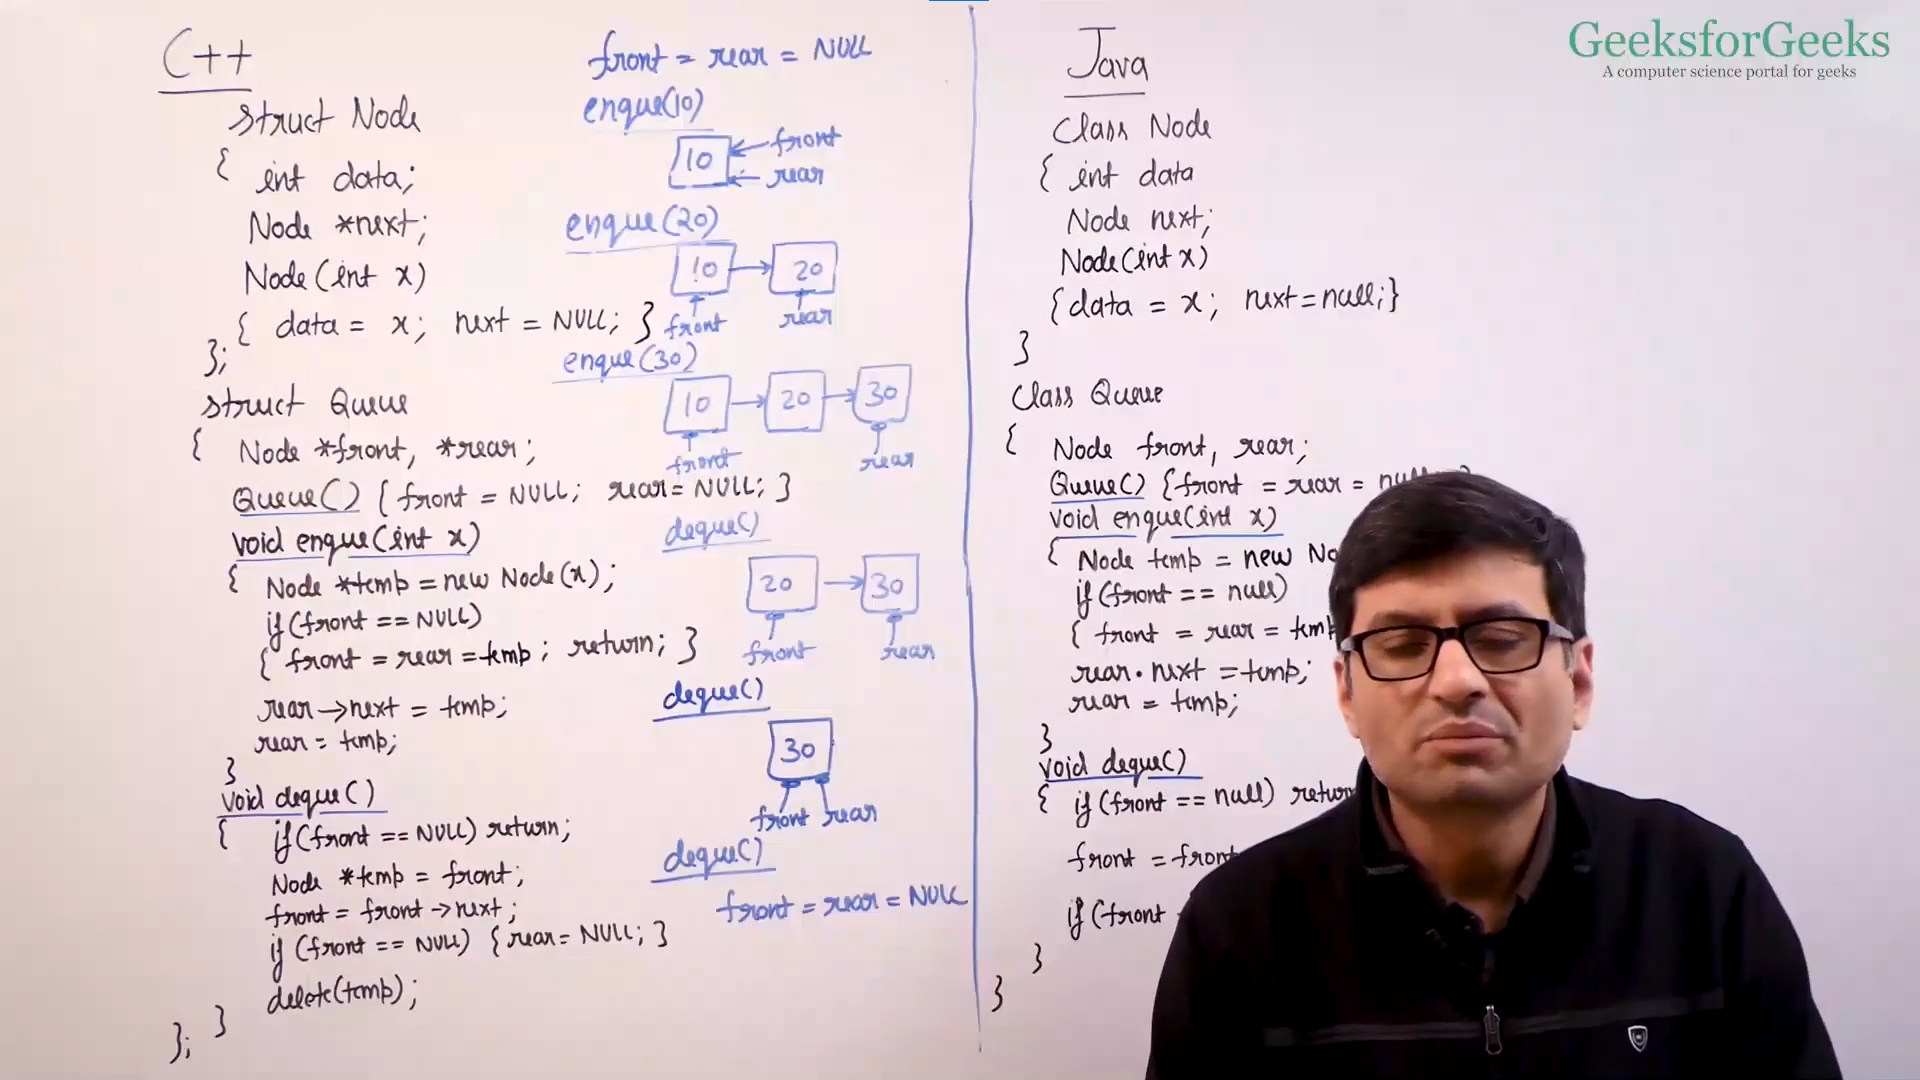 C++
struct Node
{ int data;
Node *next;
Node(int x)
{ data = x; next = NULL; }
};
struct Queue
{ Node *front, *rear;
Queue() { front = NULL; rear = NULL; }
void enque(int x)
{ Node *temp = new Node(x);
if (front == NULL)
{ front = rear = temp; return; }
rear->next = temp;
rear = temp;
}
void deque()
{ if (front == NULL) return;
Node *temp = front;
front = front->next;
if (front == NULL) {rear = NULL; }
delete(temp);
}
};
front = rear = NULL
enque(10)
10 front
rear
enque(20)
10 20
front rear
enque(30)
10 20 30
front rear
deque()
20 30
front rear
deque()
30
front rear
deque()
front = rear = NULL
Java
Class Node
{ int data
Node next;
Node(int x)
{data = x; next=null;}
}
Class Queue
{ Node front, rear;
Queue() {front = rear =
void enque(int x)
{ Node temp = new
if (front == null)
{ front = rear =
rear.next = temp;
rear = temp;
}
void deque()
{ if (front == null) return
front =
if (front
}
}
GeeksforGeeks
A computer science portal for geeks